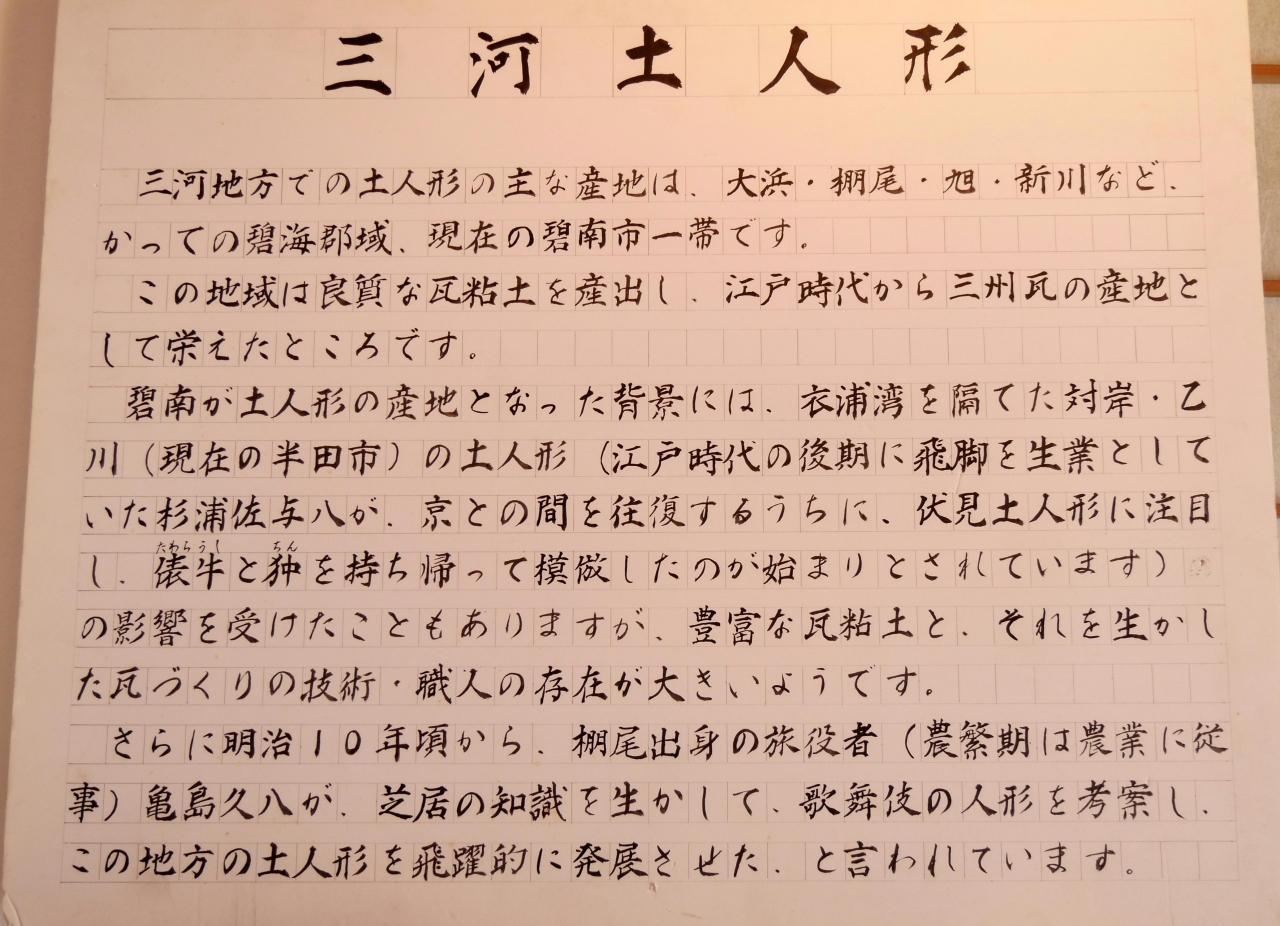 三河土人形
三河地方での土人形の主な産地は、大浜・棚尾・旭・新川など、
かっての碧海郡域、現在の碧南市一帯です。
この地域は良質な瓦粘土を産出し、江戸時代から三州瓦の産地と
して栄えたところです。
碧南が土人形の産地となった背景には、衣浦湾を隔てた対岸・乙
川（現在の半田市）の土人形（江戸時代の後期に飛脚を生業として
いた杉浦佐与八が、京との間を往復するうちに、伏見土人形に注目
たわらうし ちん
し、俵牛と狆を持ち帰って模倣したのが始まりとされています）
の影響を受けたこともありますが、豊富な瓦粘土と、それを生かし
た瓦づくりの技術・職人の存在が大きいようです。
さらに明治10年頃から、棚尾出身の旅役者（農繁期は農業に従
事）亀島久八が、芝居の知識を生かして、歌舞伎の人形を考案し、
この地方の土人形を飛躍的に発展させた、と言われています。